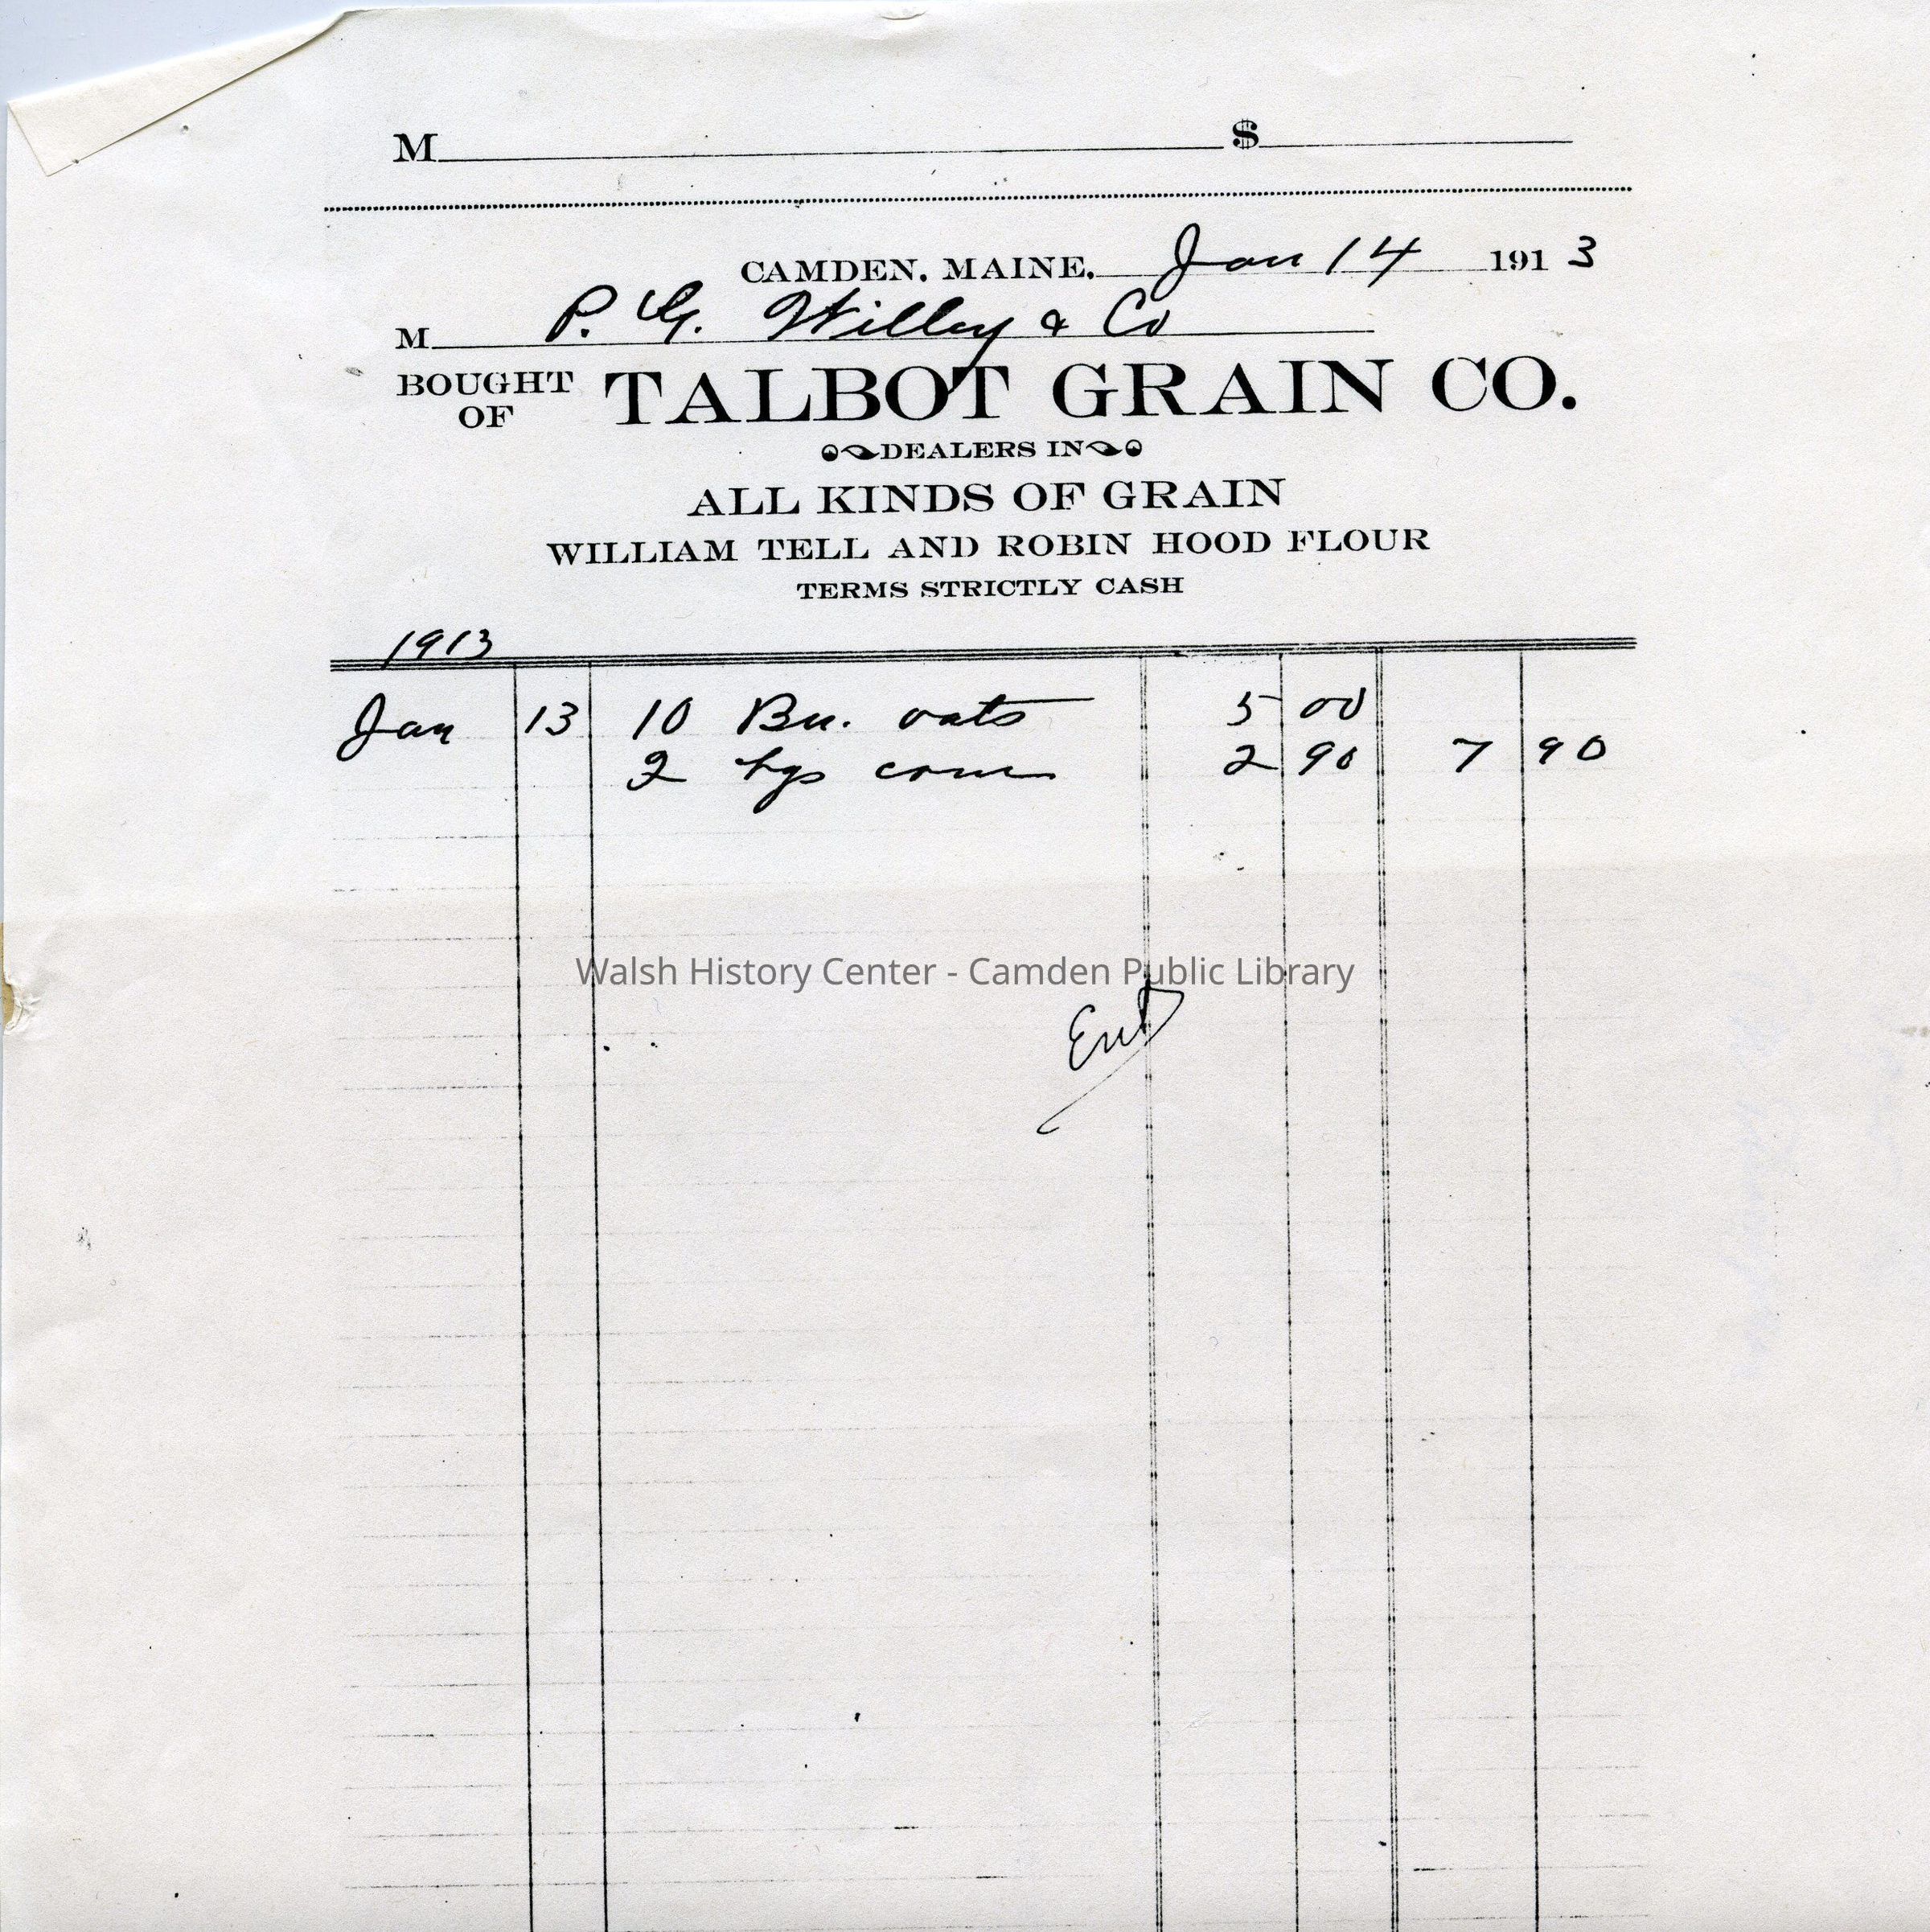 M $
CAMDEN, MAINE, Jan 14 1913
M P. G. Willey & Co
BOUGHT OF TALBOT GRAIN CO.
DEALERS IN
ALL KINDS OF GRAIN
WILLIAM TELL AND ROBIN HOOD FLOUR
TERMS STRICTLY CASH
1913
Jan 13 10 Bu. oats 5 00
2 bgs corn 2 90 7 90
Walsh History Center - Camden Public Library
Ent